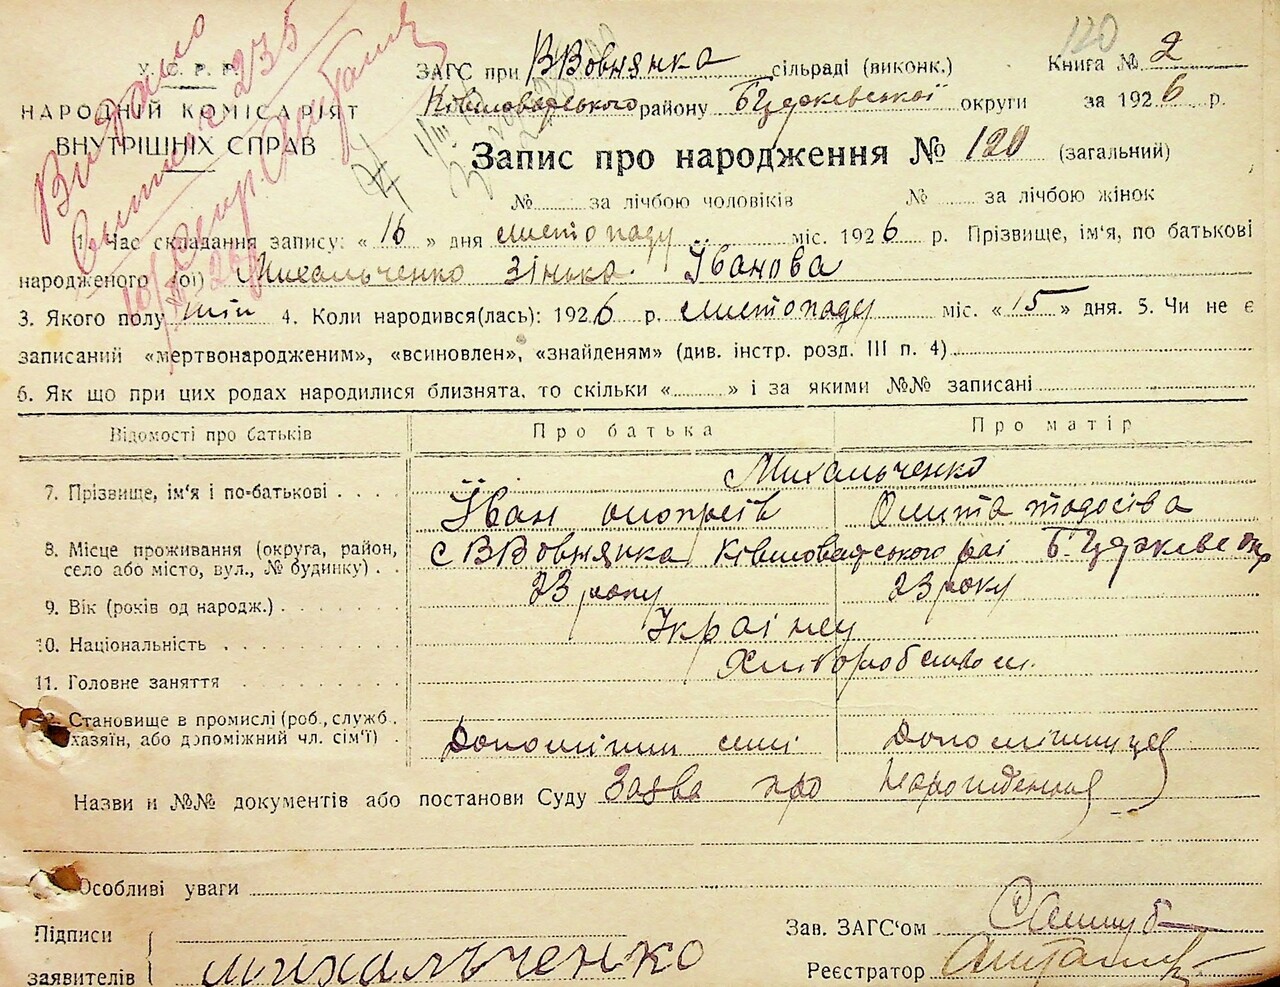 120
У. С. Р. Р.
НАРОДНІЙ КОМІСАРІЯТ
ВНУТРІШНІХ СПРАВ
Видано
ЗАГС при ВВовнянка сільраді (виконк.)
Книга № 2
району БЦерківської округи за 1926 р.
Запис про народження № 120 (загальний)
№ за лічбою чоловіків № за лічбою жінок
1. Час складання запису: « 16 » дня листопаду міс. 1926 р. Прізвище, ім'я, по батькові
народженого (ої) Михальченко Зінька Іванова
3. Якого полу жін 4. Коли народився(лась): 1926 р. листопаду міс. « 15 » дня. 5. Чи не є
записаний «мертвонародженим», «всиновлен», «знайденям» (див. інстр. розд. III п. 4)
6. Як що при цих родах народилися близнята, то скільки « » і за якими №№ записані
Відомості про батьків Про батька Про матір
Михальченко
7. Прізвище, ім'я і по-батькові Іван Оліта тодосіва
8. Місце проживання (округа, район, село або місто, вул., № будинку) с ВВовнянка раі Б.Церківс окр
9. Вік (років од народж.) 23 року 23 року
10. Національність Українец
11. Головне заняття Хліборобством
12. Становище в промислі (роб., служб.,
хазяїн, або допоміжний чл. сім'ї) Допоміжни сімї Допоміжниця
Назви и №№ документів або постанови Суду Заява про нарождення
Особливі уваги
Підписи
заявителів Михальченко
Зав. ЗАГС'ом
Реєстратор